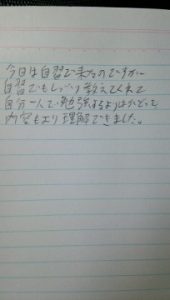 今日は自習で来たのですが
自習でもしっかり教えてくれて
自分一人で勉強するよりはかどって
内容もより理解できました。